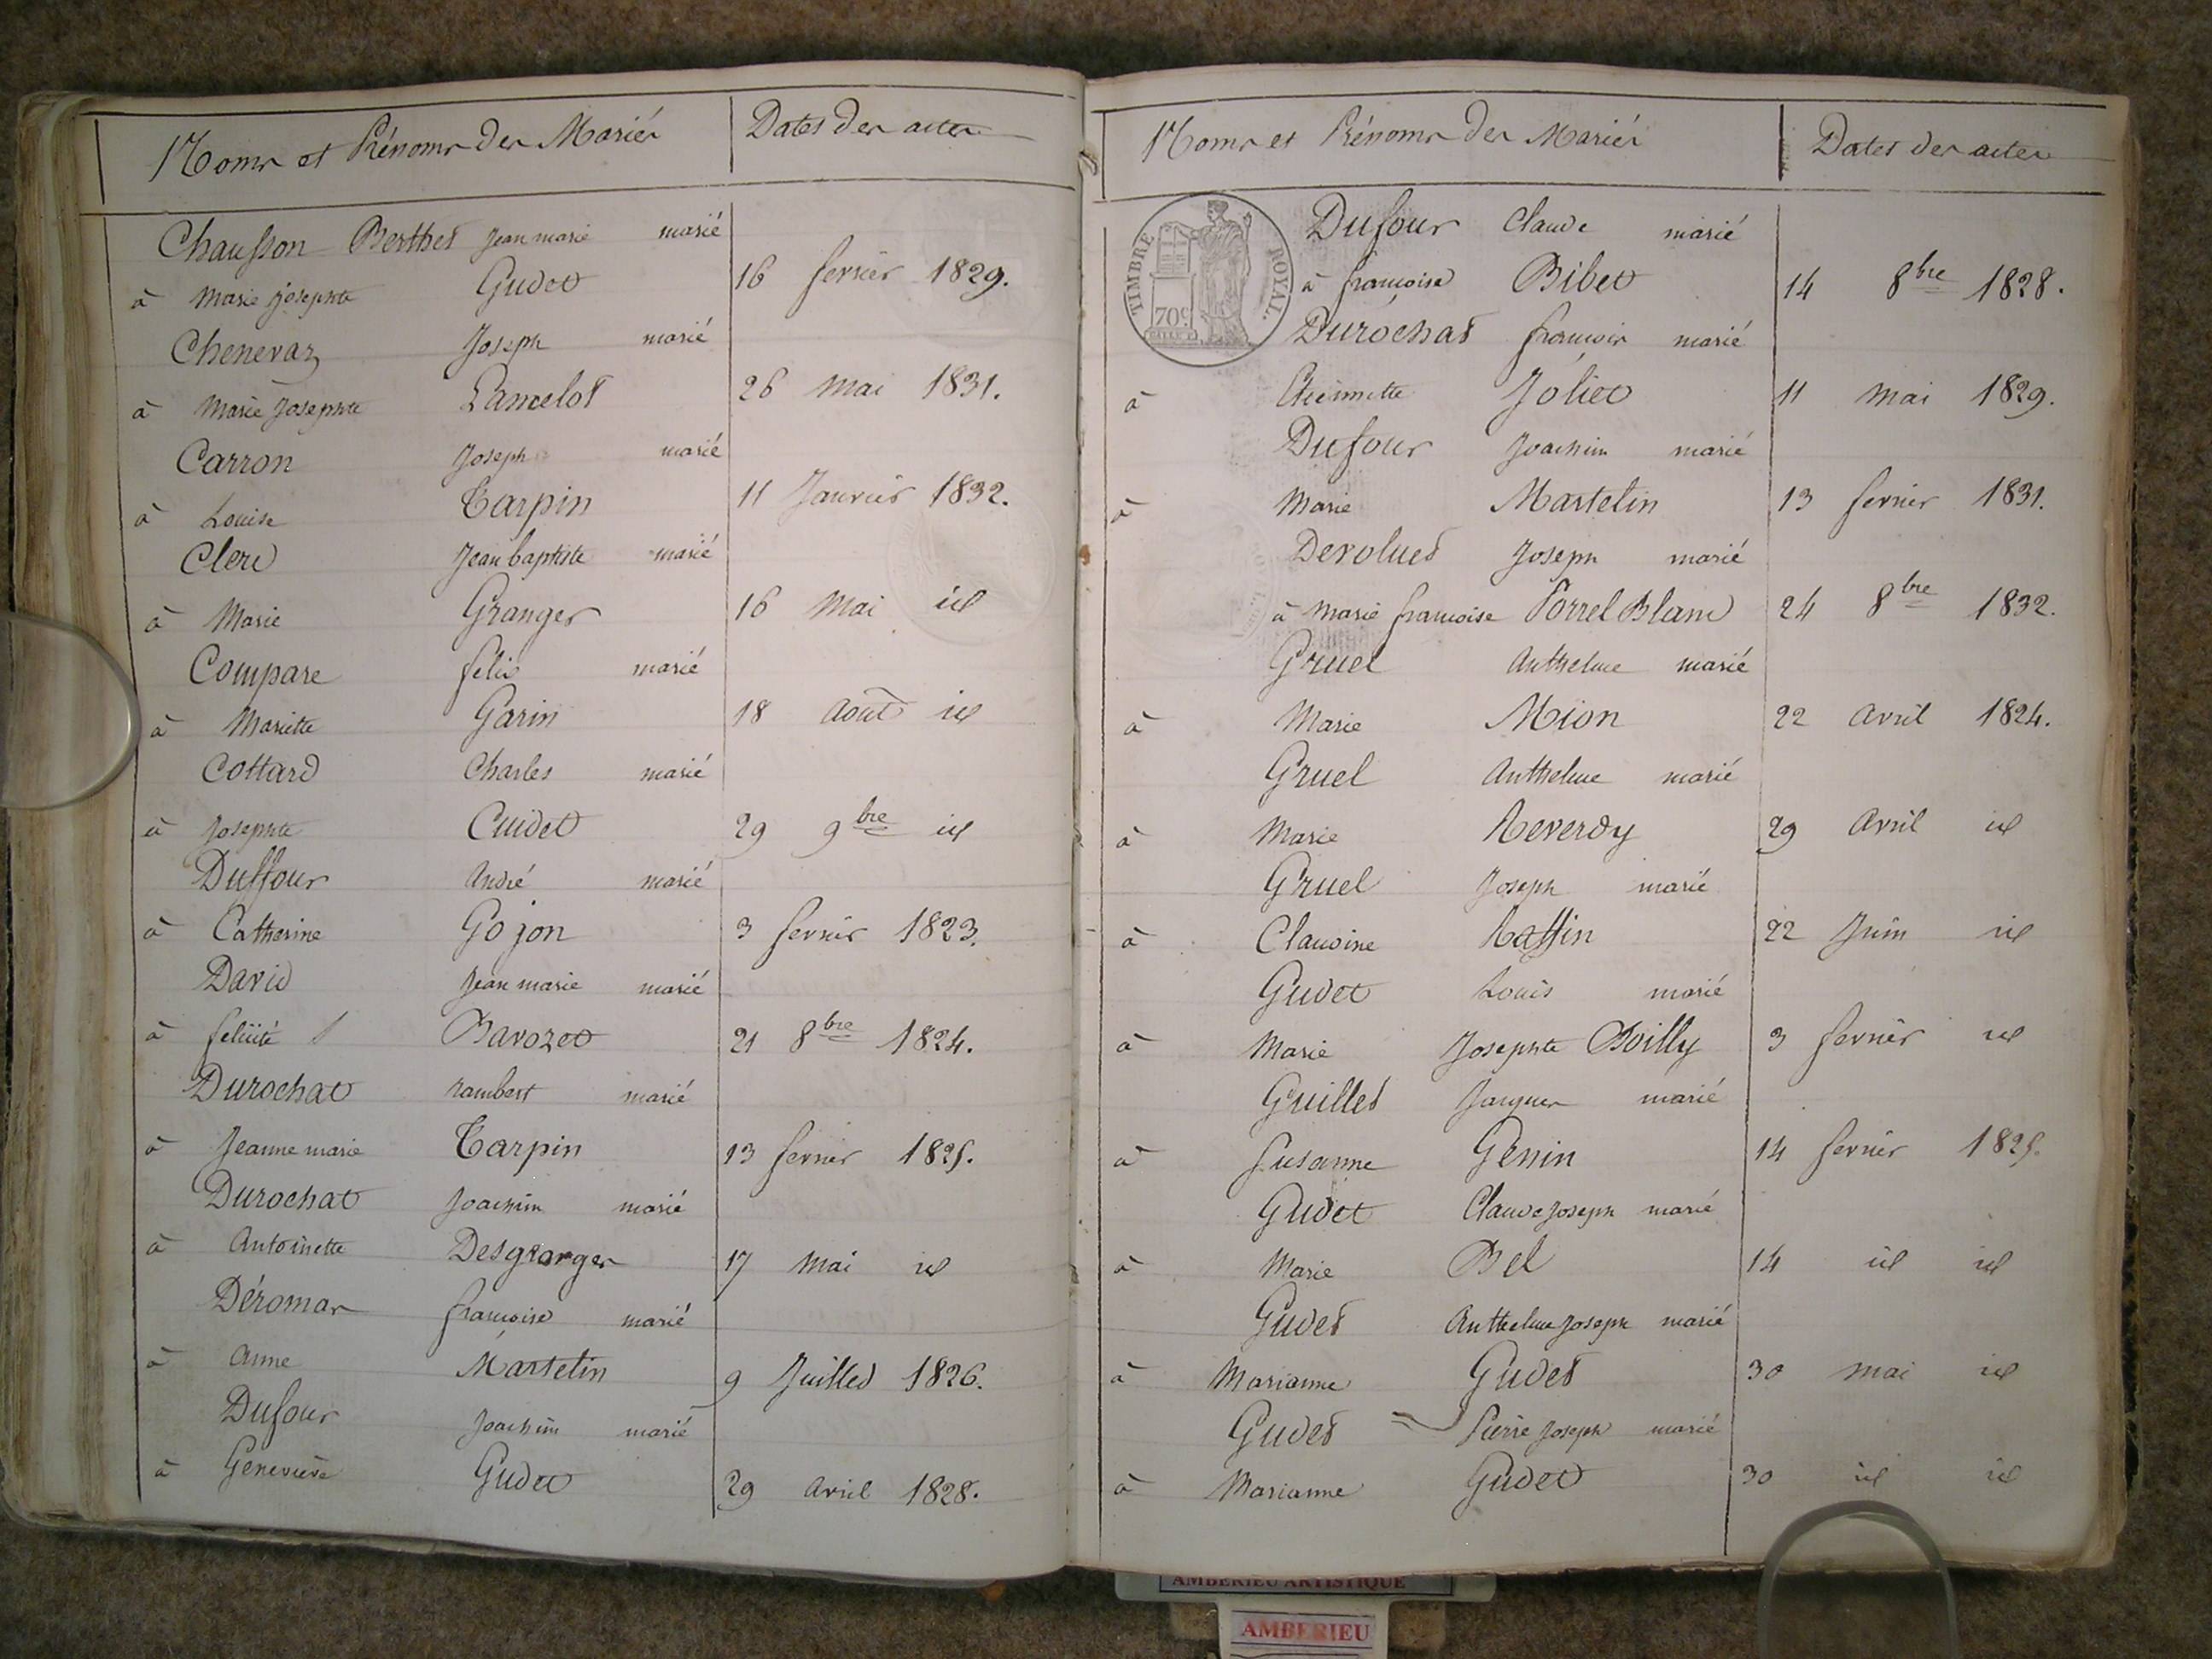 Noms et Prénoms des Mariés
Dates des actes
Chausson Berthet Jean marie marié
à Marie josephte Gudet 16 fevrier 1829.
Chenevaz Joseph marié
à Marie Josephte Lancelot 26 Mai 1831.
Carron Joseph marié
à Louise Tarpin 11 Janvier 1832.
Clerc Jean baptiste marié
à Marie Granger 16 Mai id
Compare felix marié
à Mariette Garin 18 Août id
Cottard Charles marié
à Josephte Cuidet 29 9bre id
Duffour André marié
à Catherine Gojon 3 fevrier 1823.
David Jean marie marié
à felicité Bavozet 21 8bre 1824.
Durochat rambert marié
à Jeanne marie Tarpin 13 fevrier 1825.
Durochat Joachim marié
à Antoinette Desgranges 17 Mai id
Déromas françoise marié
à Anne Martelin 9 Juillet 1826.
Dufour Joachim marié
à Genevieve Gudet 29 Avril 1828.
Noms et Prénoms des Mariés
Dates des actes
TIMBRE ROYAL.
70c
Dufour Claude marié
à françoise Bibet 14 8bre 1828.
Durochat françois marié
à Etiennette Joliet 11 Mai 1829.
Dufour Joachim marié
à Marie Martelin 13 fevrier 1831.
Devoluet Joseph marié
à Marie françoise Porrel Blanc 24 8bre 1832.
Gruel Anthelme marié
à Marie Mion 22 Avril 1824.
Gruel Anthelme marié
à Marie Reverdy 29 Avril id
Gruel Joseph marié
à Claudine Raffin 22 Juin id
Gudet Louis marié
à Marie Josephte Boilly 3 fevrier id
Guillet Jacques marié
à Susanne Genin 14 fevrier 1825.
Gudet Claude Joseph marié
à Marie Bel 14 id id
Gudet Anthelme Joseph marié
à Marianne Gudet 30 Mai id
Gudet Pierre Joseph marié
à Marianne Gudet 30 id id
AMBERIEU ARTISTIQUE
AMBERIEU